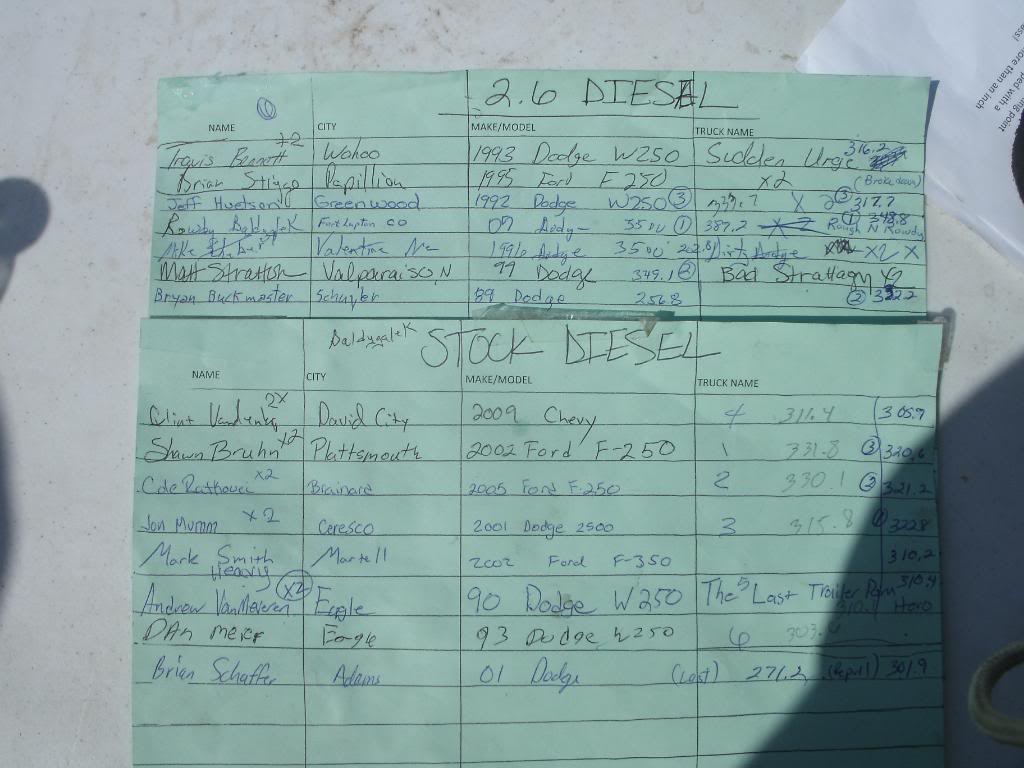 2.6 DIESEL
NAME CITY MAKE/MODEL TRUCK NAME
Travis Bennett x2 Wahoo 1993 Dodge W250 Sudden Urge 316.2
Brian Papillion 1995 Ford F250 x2 (Broke down)
Jeff Huetson Greenwood 1992 Dodge W250 3 X 2 3 317.7
Rowdy 07 3500 1 387.2 1 348.8 Rough N Rowdy
Mike Valentine Ne 1996 Dodge 3500 Dirty Dodge X2 X
Matt Stratton Valparaiso, N 99 Dodge 349.1 2 Bad Strattagy x2
Bryan Buckmaster Schuyler 89 Dodge 256.8 2 322.2
Baldygalek STOCK DIESEL
NAME CITY MAKE/MODEL TRUCK NAME
Clint 2X David City 2009 Chevy 4 311.4 305.9
Shawn Bruhn x2 Plattsmouth 2002 Ford F-250 1 331.8 3 320.6
Cole x2 Brainard 2005 Ford F-250 2 330.1 321.2
Jon Mumm x2 Ceresco 2001 Dodge 2500 3 315.8 322.8
Mark Smith Martell 2002 Ford F-350 310.2
Heavy
Andrew VanMeveren x2 Eagle 90 Dodge W250 The 5 Last Trailer Park Hero 310.4
Dan Meier Eagle 93 Dodge W250 6
Brian Schaffer Adams 01 Dodge (Last) 271.2 (Repull) 301.9
ped with a
ore than an inch